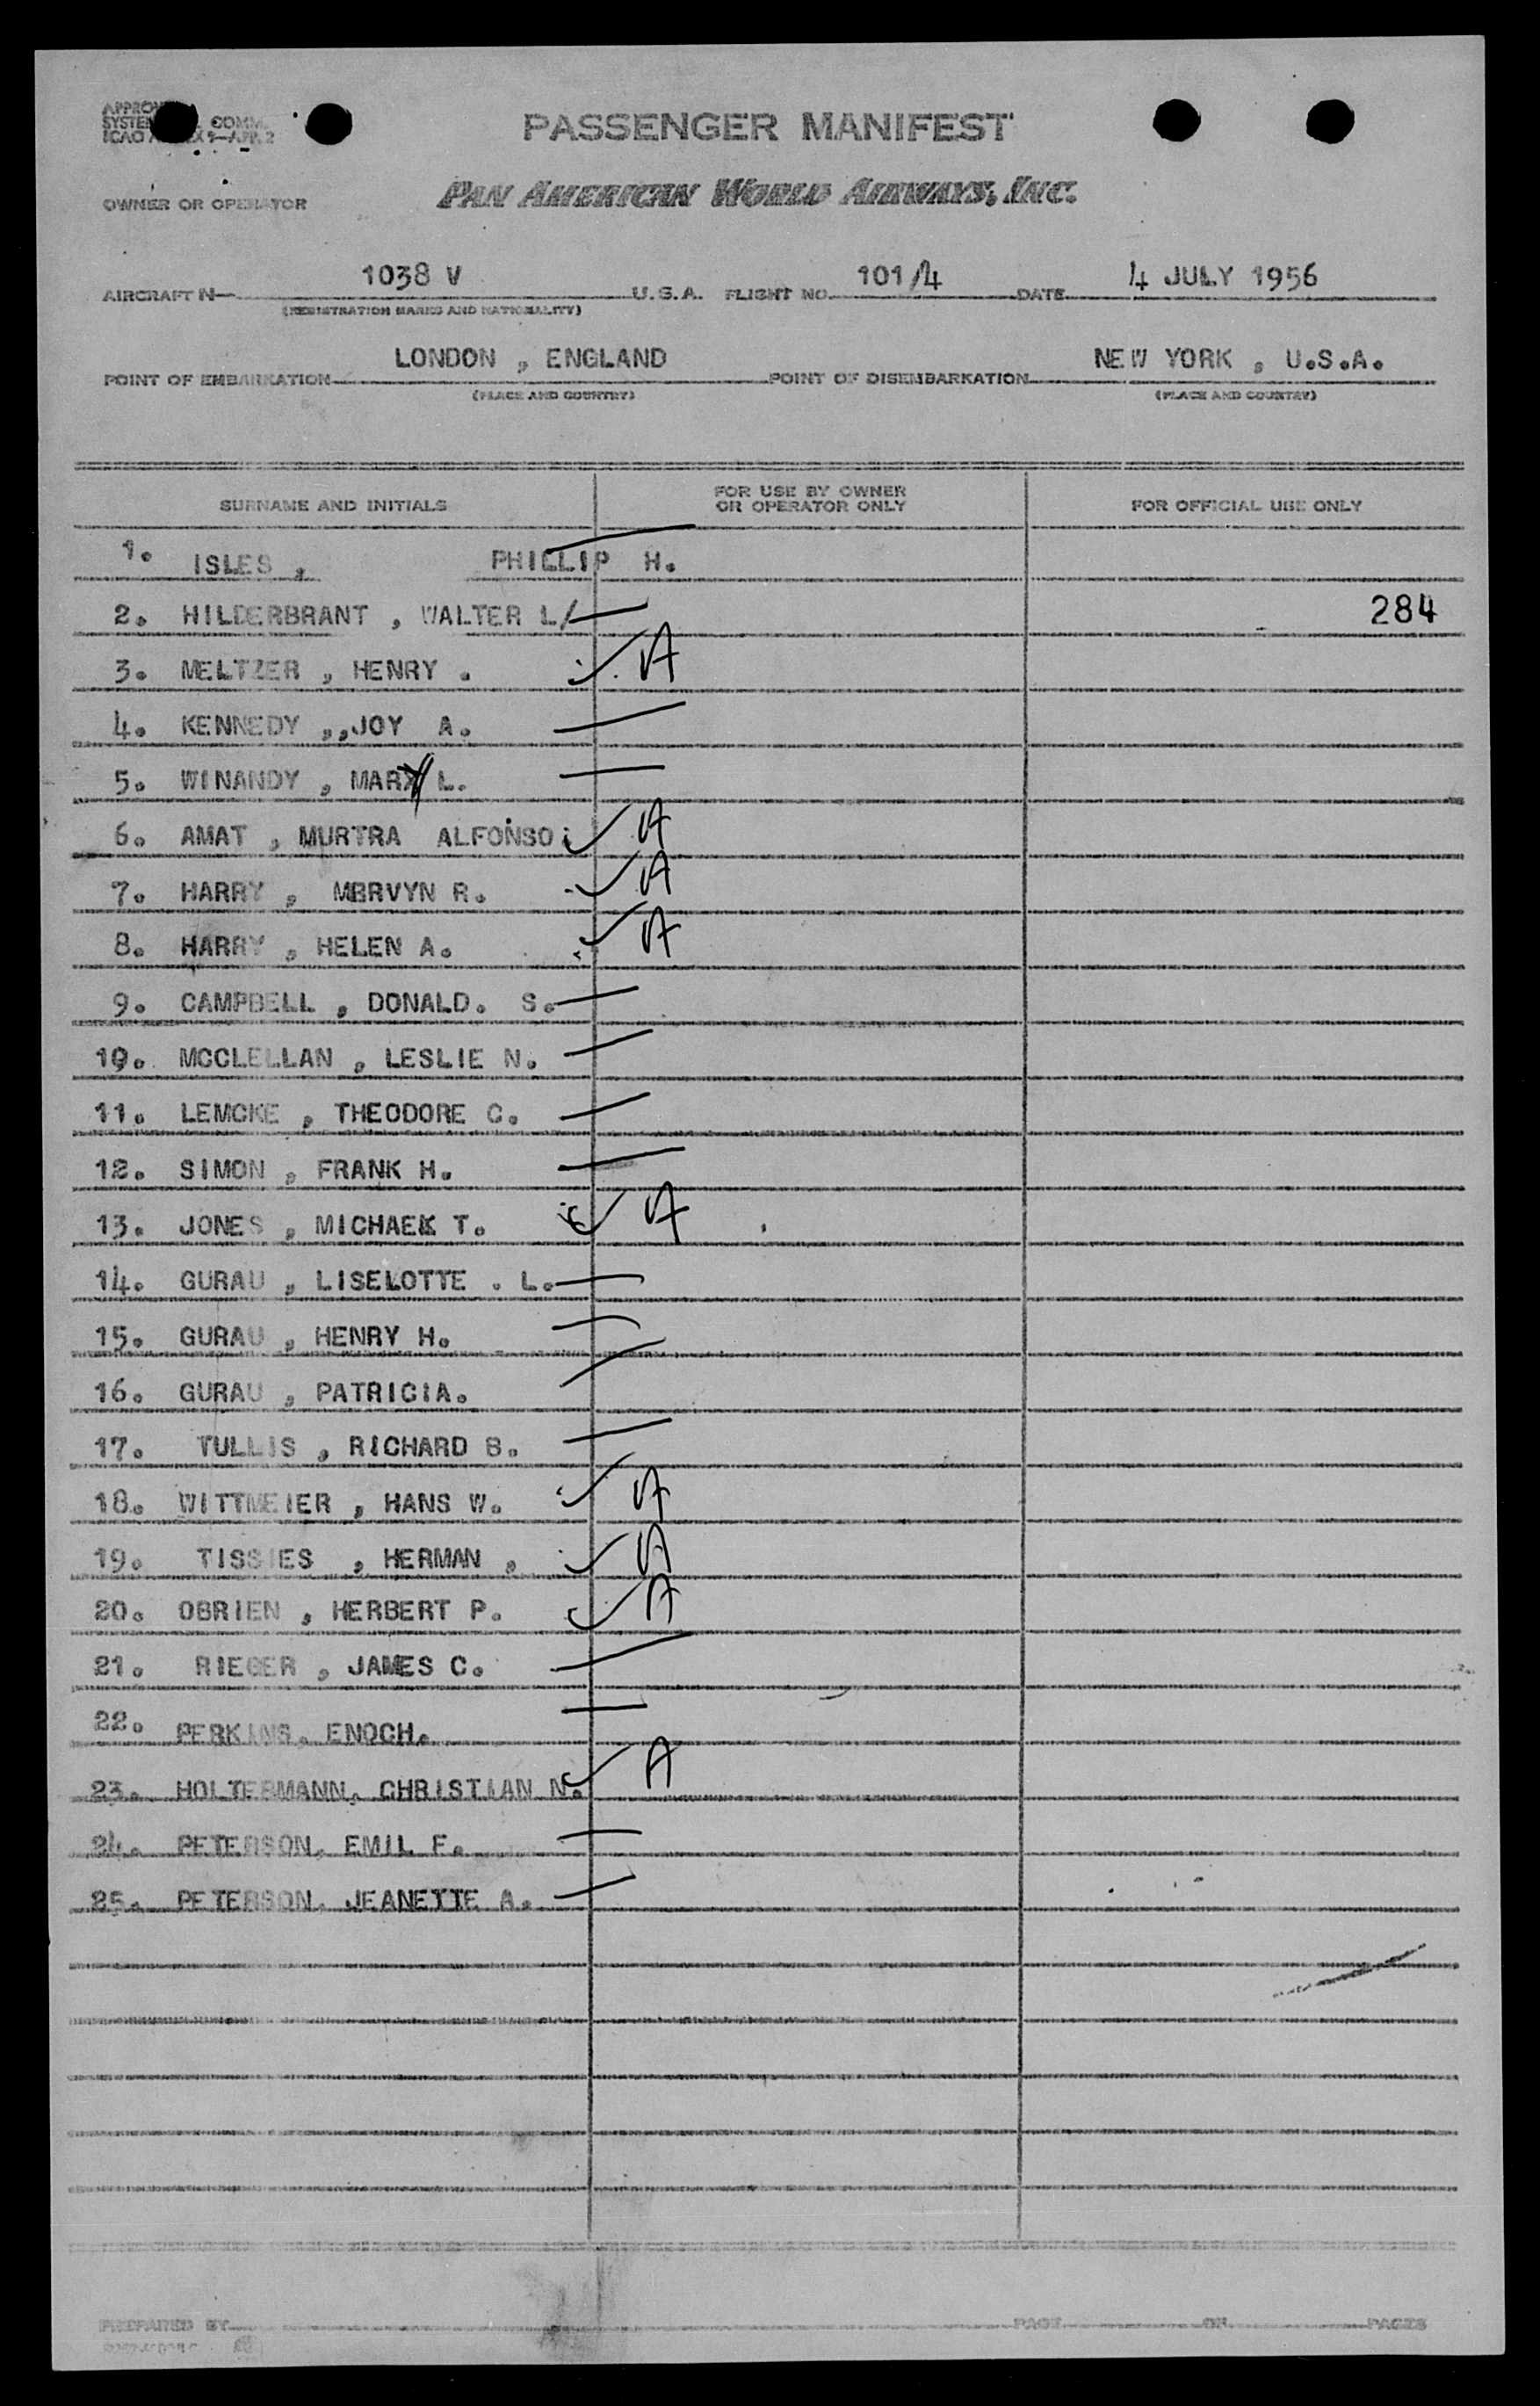 PASSENGER MANIFEST
OWNER OR OPERATOR PAN AMERICAN WORLD AIRWAYS, INC.
AIRCRAFT N 1038 V U.S.A. FLIGHT NO. 101/4 DATE 4 JULY 1956
(REGISTRATION MARKS AND NATIONALITY)
POINT OF EMBARKATION LONDON , ENGLAND POINT OF DISEMBARKATION NEW YORK , U.S.A.
(PLACE AND COUNTRY) (PLACE AND COUNTRY)
SURNAME AND INITIALS FOR USE BY OWNER OR OPERATOR ONLY FOR OFFICIAL USE ONLY
1. ISLES , PHILLIP H.
2. HILDERBRANT , WALTER L/ 284
3. MELTZER , HENRY . A
4. KENNEDY ,,JOY A.
5. WINANDY , MARY L.
6. AMAT , MURTRA ALFONSO. A
7. HARRY , MERVYN R. A
8. HARRY , HELEN A. A
9. CAMPBELL , DONALD. S.
10. MCCLELLAN , LESLIE N.
11. LEMCKE , THEODORE C.
12. SIMON , FRANK H.
13. JONES , MICHAEK T. A
14. GURAU , LISELOTTE . L.
15. GURAU , HENRY H.
16. GURAU , PATRICIA.
17. TULLIS , RICHARD B.
18. WITTMEIER , HANS W. A
19. TISSIES , HERMAN , A
20. OBRIEN , HERBERT P. A
21. RIEGER , JAMES C.
22. PERKINS, ENOCH.
23. HOLTERMANN, CHRISTIAN N. A
24. PETERSON, EMIL F.
25. PETERSON, JEANETTE A.
PREPARED BY PAGE OF PAGES